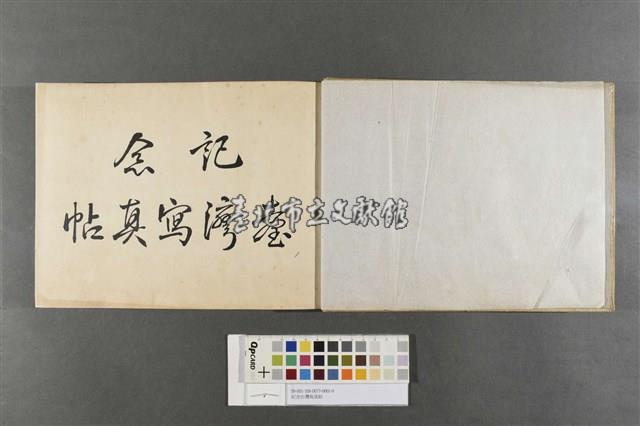 記念
臺灣寫真帖
臺北市立文獻館
QPCARD